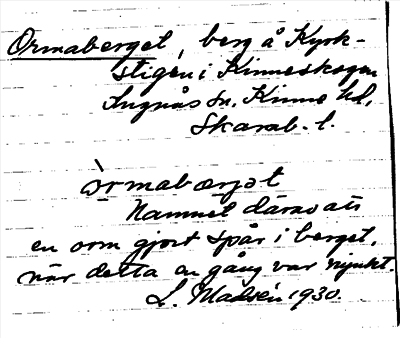 Ormaberget, berg å Kyrk-
stigen i Kinneskogen
Lugnås sn. Kinne hd,
Skarab. l.
òrmabærjət
Namnet därav att
en orm gjort spår i berget,
när detta en gång var mjukt.
L. Madsén 1930.